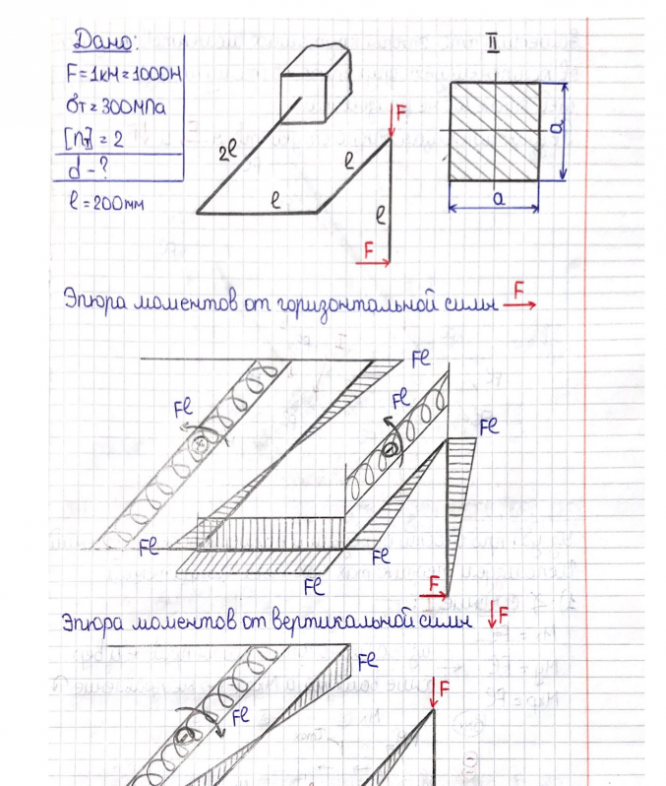 Дано:
F=1кН=1000Н
σт=300МПа
[nт]=2
d-?
ℓ=200мм
II
F
2ℓ
ℓ
ℓ
ℓ
F
a
a
Эпюра моментов от горизонтальной силы F
Fℓ
Fℓ
Fℓ
Fℓ
Fℓ
Fℓ
Fℓ
F
Эпюра моментов от вертикальной силы F
Fℓ
Fℓ
F